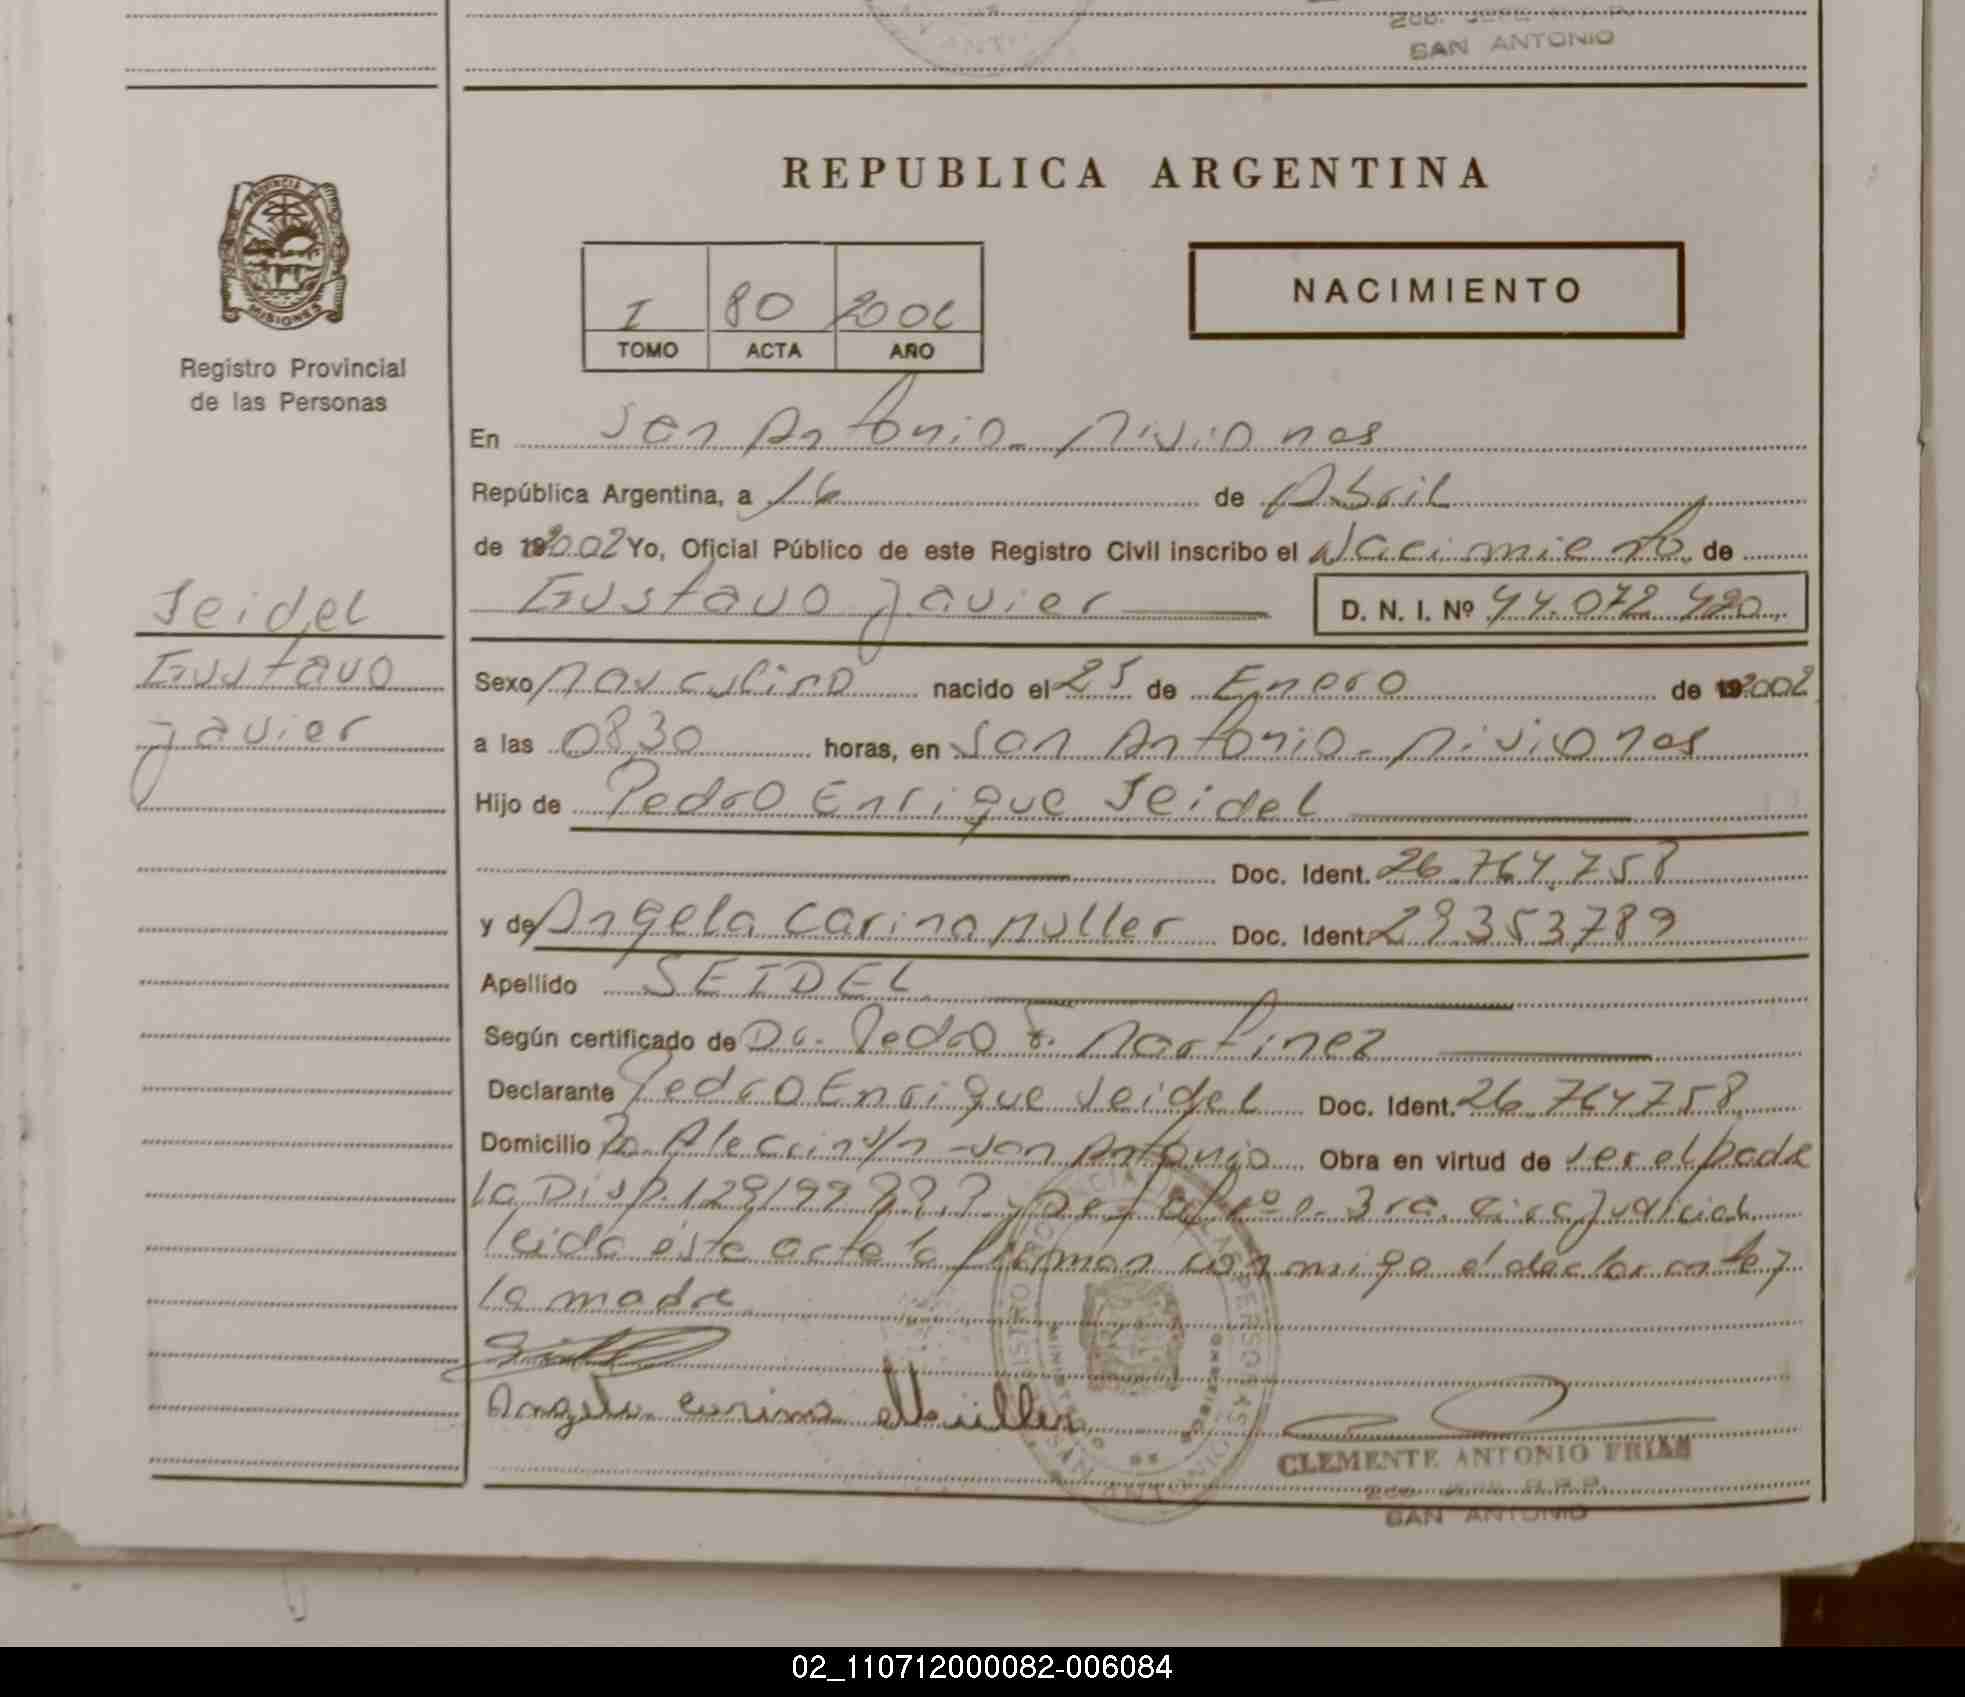 2do. JEFE R.P.P.
SAN ANTONIO
REPUBLICA ARGENTINA
PROVINCIA DE
MISIONES
Registro Provincial
de las Personas
I 80 2002
TOMO ACTA AÑO
NACIMIENTO
En San Antonio - Misiones
República Argentina, a 16 de Abril
de 192002 Yo, Oficial Público de este Registro Civil inscribo el Nacimiento de
Gustavo Javier D. N. I. Nº 44.072 420
Seidel
Gustavo
Javier
Sexo Masculino nacido el 25 de Enero de 192002
a las 0830 horas, en San Antonio - Misiones
Hijo de Pedro Enrique Seidel
Doc. Ident. 26.764.758
y de Angela Carina Muller Doc. Ident. 29353789
Apellido SEIDEL
Según certificado de Dr. Pedro F. Martinez
Declarante Pedro Enrique Seidel Doc. Ident. 26.764758
Domicilio Bo Alecrin s/n - San Antonio Obra en virtud de ser el padre
la Disp. 129/99 3ra. circ. Judicial
leida ésta acta la firman conmigo el declarante y
la madre
Angela carina Müller
CLEMENTE ANTONIO FRIAS
2do. JEFE R.P.P.
SAN ANTONIO
02_110712000082-006084